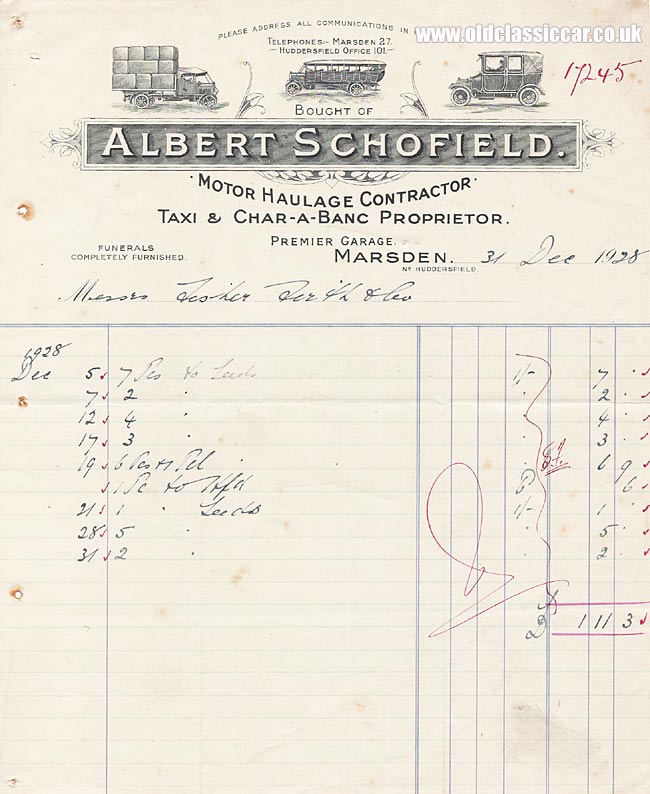 www.oldclassiccar.co.uk
PLEASE ADDRESS ALL COMMUNICATIONS IN
TELEPHONES:- MARSDEN 27.
HUDDERSFIELD OFFICE 101.
17245
BOUGHT OF
ALBERT SCHOFIELD.
MOTOR HAULAGE CONTRACTOR
TAXI & CHAR-A-BANC PROPRIETOR.
FUNERALS
COMPLETELY FURNISHED.
PREMIER GARAGE.
MARSDEN. 31 Dec 1928
NR HUDDERSFIELD.
Messrs Fisher Firth & Co
1928
Dec 5 7 Pcs to Leeds 1/- 7 "
7 2 " " 2 "
12 4 " " 4 "
17 3 " " 3 "
19 6 Pcs & 1 Pcl " " 6 9
1 Pc to Hfd 6
21 1 " Leeds 1/- 1 "
28 5 " " 5 "
31 2 " " 2 "
1 11 3